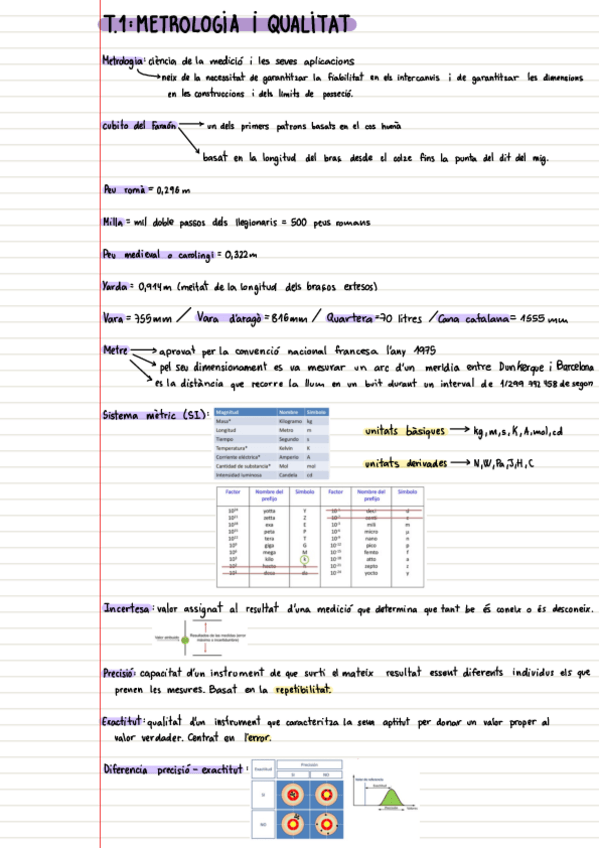 T.1: METROLOGIA I QUALITAT
Metrologia: ciència de la medició i les seves aplicacions
neix de la necessitat de garantitzar la fiabilitat en els intercanvis i de garantitzar les dimensions
en les construccions i dels límits de possesció.
cubito del Faraón → un dels primers patrons basats en el cos humà
basat en la longitud del bras desde el colze fins la punta del dit del mig.
Peu romà = 0,296 m
Milla = mil doble passos dels llegionaris = 500 peus romans
Peu medieval o carolingi = 0,322 m
Yarda = 0,914 m (meitat de la longitud dels braços extesos)
Vara = 755 mm / Vara d'aragó = 816 mm / Quartera = 70 litres / Cana catalana = 1555 mm
Metre → aprovat per la convenció nacional francesa l'any 1975
pel seu dimensionament es va mesurar un arc d'un meridia entre Dunkerque i Barcelona
es la distància que recorre la llum en un buit durant un interval de 1/299 792 958 de segon
Sistema mètric (SI):
Magnitud Nombre Símbolo
Masa* Kilogramo kg
Longitud Metro m
Tiempo Segundo s
Temperatura* Kelvin K
Corriente eléctrica* Amperio A
Cantidad de substancia* Mol mol
Intensidad luminosa Candela cd
unitats bàsiques → kg, m, s, K, A, mol, cd
unitats derivades → N, W, Pa, J, H, C
Factor Nombre del prefijo Símbolo Factor Nombre del prefijo Símbolo
10²⁴ yotta Y 10⁻¹ deci d
10²¹ zetta Z 10⁻² centi c
10¹⁸ exa E 10⁻³ mili m
10¹⁵ peta P 10⁻⁶ micro μ
10¹² tera T 10⁻⁹ nano n
10⁹ giga G 10⁻¹² pico p
10⁶ mega M 10⁻¹⁵ femto f
10³ kilo k 10⁻¹⁸ atto a
10² hecto h 10⁻²¹ zepto z
10¹ deca da 10⁻²⁴ yocto y
Incertesa: valor assignat al resultat d'una medició que determina que tant be és coneix o és desconeix.
Valor atribuido
Resultados de las medidas (error máximo o incertidumbre)
Precisió: capacitat d'un instrument de que surti el mateix resultat essent diferents individus els que
prenen les mesures. Basat en la repetibilitat.
Exactitut: qualitat d'un instrument que caracteritza la seva aptitut per donar un valor proper al
valor verdader. Centrat en l'error.
Diferencia precisió - exactitut:
Exactitud Precisión
SI NO
SI
NO
Valor de referencia
Exactitud
Precisión
Valores